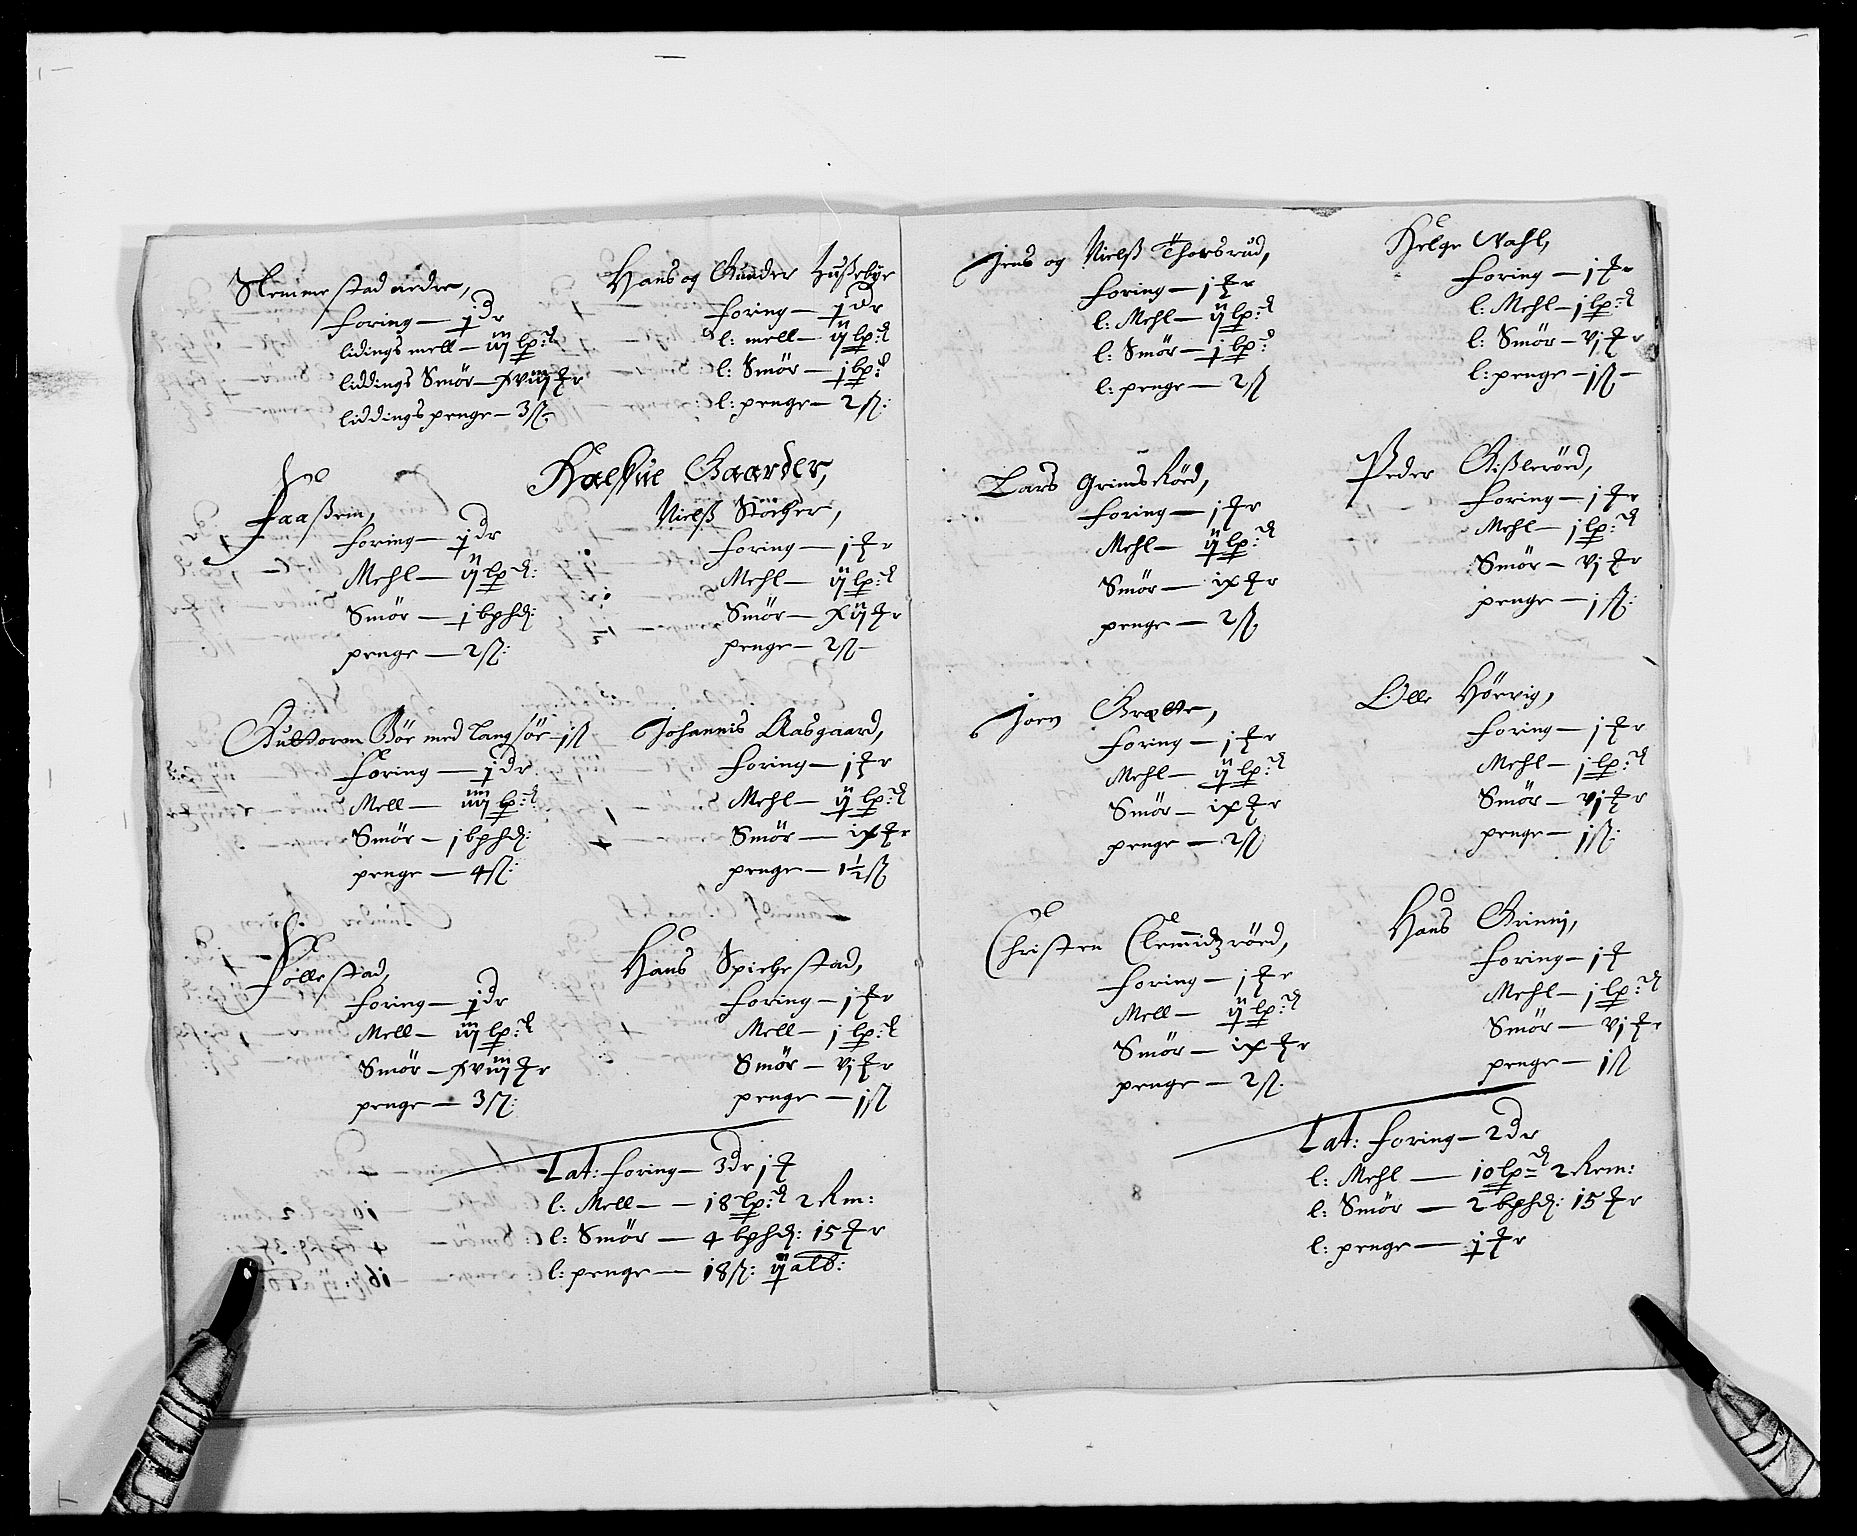 Slemmestad nedre,
foring — j dr
lidings mell — iij lp:d
liddings Smör — xviij ℔r
liddings penge — 3 ß
Faaßein,
foring — j dr
Mehl — ij lp:d:
Smör — j bphd:
penge — 2 ß:
Guttorm Böe med langsöe — j ß
foring — j dr
Mell — iiij lp:d
Smör — j bphd:
penge — 4 ß:
Föllestad,
foring — j dr
Mell — iij lp:d
Smör — xviij ℔r
penge — 3 ß:
Hans og Gunder Hußebye
foring — j dr
l: mell — ij lp:d
l: Smör — j bp:d
l: penge — 2 ß:
Halfve Gaarder,
Nielß Stöcher,
foring — j ℔r
Mehl — ij lp:d
Smör — xij ℔r
penge — 2 ß —
Johannis Aasgaard,
foring — j ℔r
Mehl — ij lp:d
Smör — ix ℔r
penge — 1½ ß
Hans Spichestad,
foring — j ℔r
Mell — j lp:d
Smör — vj ℔r
penge — j ß
Lat: foring — 3 dr j ℔
l: Mell — 18 lp:d 2 Rem:
l: Smör — 4 bphd: 15 ℔r
l: penge — 18 ß: ij alb:
Jens og Nielß Thorsrud,
foring — j ℔r
l: Mehl — ij lp:d
l: Smör — j bp:d
l: penge — 2 ß
Lars Grimsröed,
foring — j ℔r
Mehl — ij lp:d
Smör — ix ℔r
penge — 2 ß
Joen Grette,
foring — j ℔r
Mehl — ij lp:d
Smör — ix ℔r
penge — 2 ß
Christen Clemmidzröed,
foring — j ℔r
Mell — ij lp:d
Smör — ix ℔r
penge — 2 ß:
Helge Nahl,
foring — j ℔r
l: Mehl — j lp:d
l: Smör — vj ℔r
l: penge — j ß —
Peder Gißleröed,
foring — j ℔r
Mehl — j lp:d
Smör — vj ℔r
penge — j ß:
Olle Hörvig,
foring — j ℔r
Mehl — j lp:d
Smör — vj ℔r
penge — j ß:
Hans Grinnj,
foring — j ℔
Mehl — j lp:d
Smör — vj ℔r
penge — j ß
Lat: foring — 2 dr
l: Mehl — 10 lp:d 2 Rem:
l: Smör — 2 bphd: 15 ℔r
l: penge — j ℔r